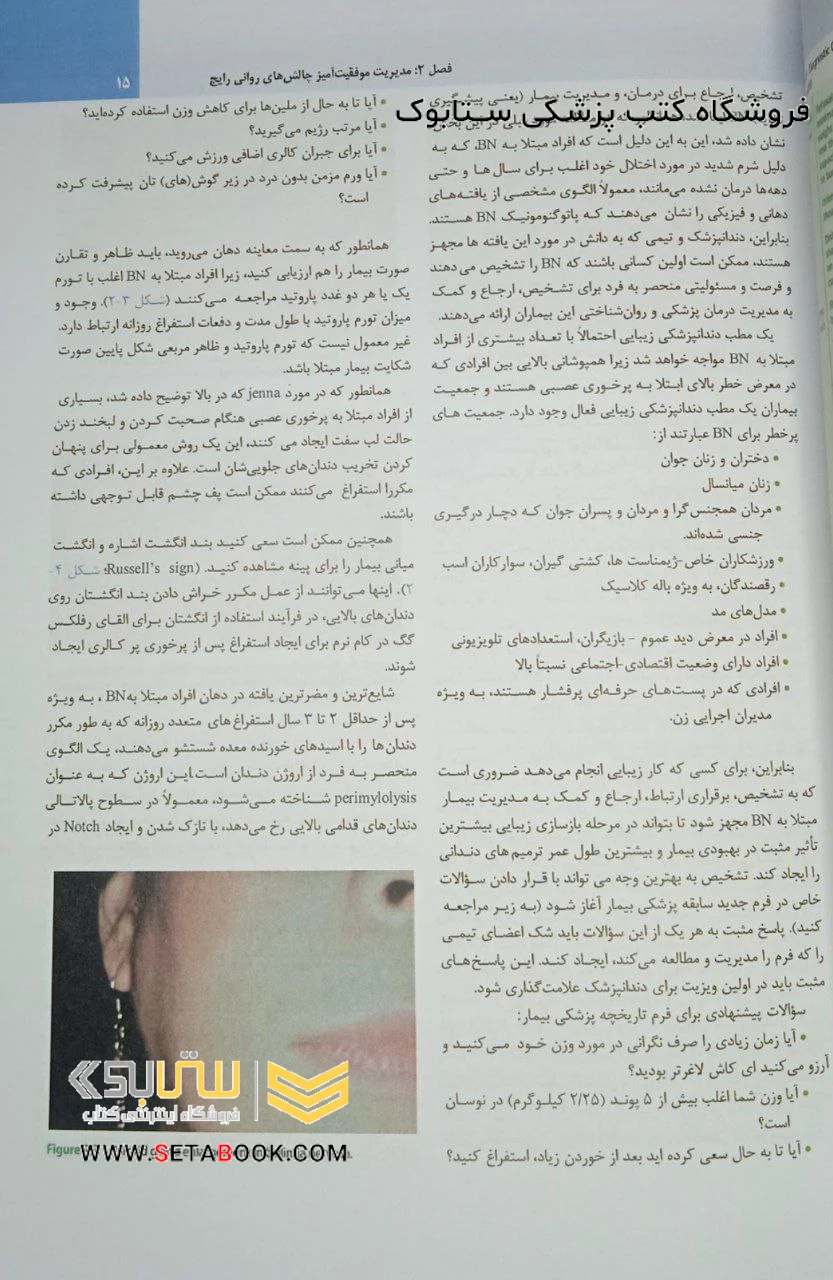 فصل ۲: مدیریت موفقیت‌آمیز چالش‌های روانی رایج
۱۵
فروشگاه کتب پزشکی ستابوک
تشخیص، ارجاع برای درمان، و مدیریت بیمار (یعنی پیشگیری
نشان داده شد، این به این دلیل است که افراد مبتلا به BN، که به
دلیل شرم شدید در مورد اختلال خود اغلب برای سال ها و حتی
دهه‌ها درمان نشده می‌مانند، معمولاً الگوی مشخصی از یافته‌های
دهانی و فیزیکی را نشان می‌دهند که پاتوگنومونیک BN هستند.
بنابراین، دندانپزشک و تیمی که به دانش در مورد این یافته ها مجهز
هستند، ممکن است اولین کسانی باشند که BN را تشخیص می دهند
و فرصت و مسئولیتی منحصر به فرد برای تشخیص، ارجاع و کمک
به مدیریت درمان پزشکی و روان‌شناختی این بیماران ارائه می‌دهند.
یک مطب دندانپزشکی زیبایی احتمالاً با تعداد بیشتری از افراد
مبتلا به BN مواجه خواهد شد زیرا همپوشانی بالایی بین افرادی که
در معرض خطر بالای ابتلا به پرخوری عصبی هستند و جمعیت
بیماران یک مطب دندانپزشکی زیبایی فعال وجود دارد. جمعیت های
پرخطر برای BN عبارتند از:
• دختران و زنان جوان
• زنان میانسال
• مردان همجنس‌گرا و مردان و پسران جوان که دچار درگیری
جنسی شده‌اند.
• ورزشکاران خاص-ژیمناست ها، کشتی گیران، سوارکاران اسب
• رقصندگان، به ویژه باله کلاسیک
• مدل‌های مد
• افراد در معرض دید عموم - بازیگران، استعدادهای تلویزیونی
• افراد دارای وضعیت اقتصادی-اجتماعی نسبتاً بالا
• افرادی که در پست‌های حرفه‌ای پرفشار هستند، به ویژه
مدیران اجرایی زن.
بنابراین، برای کسی که کار زیبایی انجام می‌دهد ضروری است
که به تشخیص، برقراری ارتباط، ارجاع و کمک به مدیریت بیمار
مبتلا به BN مجهز شود تا بتواند در مرحله بازسازی زیبایی بیشترین
تأثیر مثبت در بهبودی بیمار و بیشترین طول عمر ترمیم های دندانی
را ایجاد کند. تشخیص به بهترین وجه می تواند با قرار دادن سؤالات
خاص در فرم جدید سابقه پزشکی بیمار آغاز شود (به زیر مراجعه
کنید). پاسخ مثبت به هر یک از این سؤالات باید شک اعضای تیمی
را که فرم را مدیریت و مطالعه می‌کند، ایجاد کند. این پاسخ‌های
مثبت باید در اولین ویزیت برای دندانپزشک علامت‌گذاری شود.
سؤالات پیشنهادی برای فرم تاریخچه پزشکی بیمار:
• آیا زمان زیادی را صرف نگرانی در مورد وزن خود می‌کنید و
آرزو می‌کنید ای کاش لاغرتر بودید؟
• آیا وزن شما اغلب بیش از ۵ پوند (۲/۲۵ کیلوگرم) در نوسان
است؟
• آیا تا به حال سعی کرده اید بعد از خوردن زیاد، استفراغ کنید؟
• آیا تا به حال از ملین‌ها برای کاهش وزن استفاده کرده‌اید؟
• آیا مرتب رژیم می‌گیرید؟
• آیا برای جبران کالری اضافی ورزش می‌کنید؟
• آیا ورم مزمن بدون درد در زیر گوش(های) تان پیشرفت کرده
است؟
همانطور که به سمت معاینه دهان می‌روید، باید ظاهر و تقارن
صورت بیمار را هم ارزیابی کنید، زیرا افراد مبتلا به BN اغلب با تورم
یک یا هر دو غدد پاروتید مراجعه می‌کنند (شکل ۳-۲). وجود و
میزان تورم پاروتید با طول مدت و دفعات استفراغ روزانه ارتباط دارد.
غیر معمول نیست که تورم پاروتید و ظاهر مربعی شکل پایین صورت
شکایت بیمار مبتلا باشد.
همانطور که در مورد jenna که در بالا توضیح داده شد، بسیاری
از افراد مبتلا به پرخوری عصبی هنگام صحبت کردن و لبخند زدن
حالت لب سفت ایجاد می کنند، این یک روش معمولی برای پنهان
کردن تخریب دندان‌های جلویی‌شان است. علاوه بر این، افرادی که
مکررا استفراغ می‌کنند ممکن است پف چشم قابل توجهی داشته
باشند.
همچنین ممکن است سعی کنید بند انگشت اشاره و انگشت
میانی بیمار را برای پینه مشاهده کنید. (Russell's sign؛ شکل ۴-
۲). اینها می‌توانند از عمل مکرر خراش دادن بند انگشتان روی
دندان‌های بالایی، در فرآیند استفاده از انگشتان برای القای رفلکس
گگ در کام نرم برای ایجاد استفراغ پس از پرخوری پر کالری ایجاد
شوند.
شایع‌ترین و مضرترین یافته در دهان افراد مبتلا به BN، به ویژه
پس از حداقل ۲ تا ۳ سال استفراغ‌های متعدد روزانه که به طور مکرر
دندان ها را با اسیدهای خورنده معده شستشو می‌دهند، یک الگوی
منحصر به فرد از اروژن دندان است.این اروژن که به عنوان
perimylolysis شناخته می‌شود، معمولاً در سطوح پالاتالی
دندان‌های قدامی بالایی رخ می‌دهد، با نازک شدن و ایجاد Notch در
ستابوک
فروشگاه اینترنتی کتاب
Figure
WWW.SETABOOK.COM